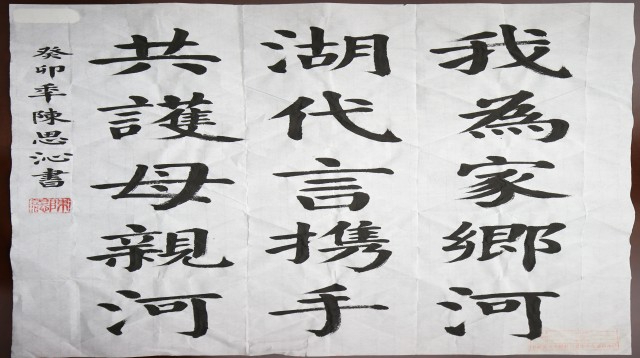 我為家鄉河
湖代言携手
共護母親河
癸卯年陳思沁書